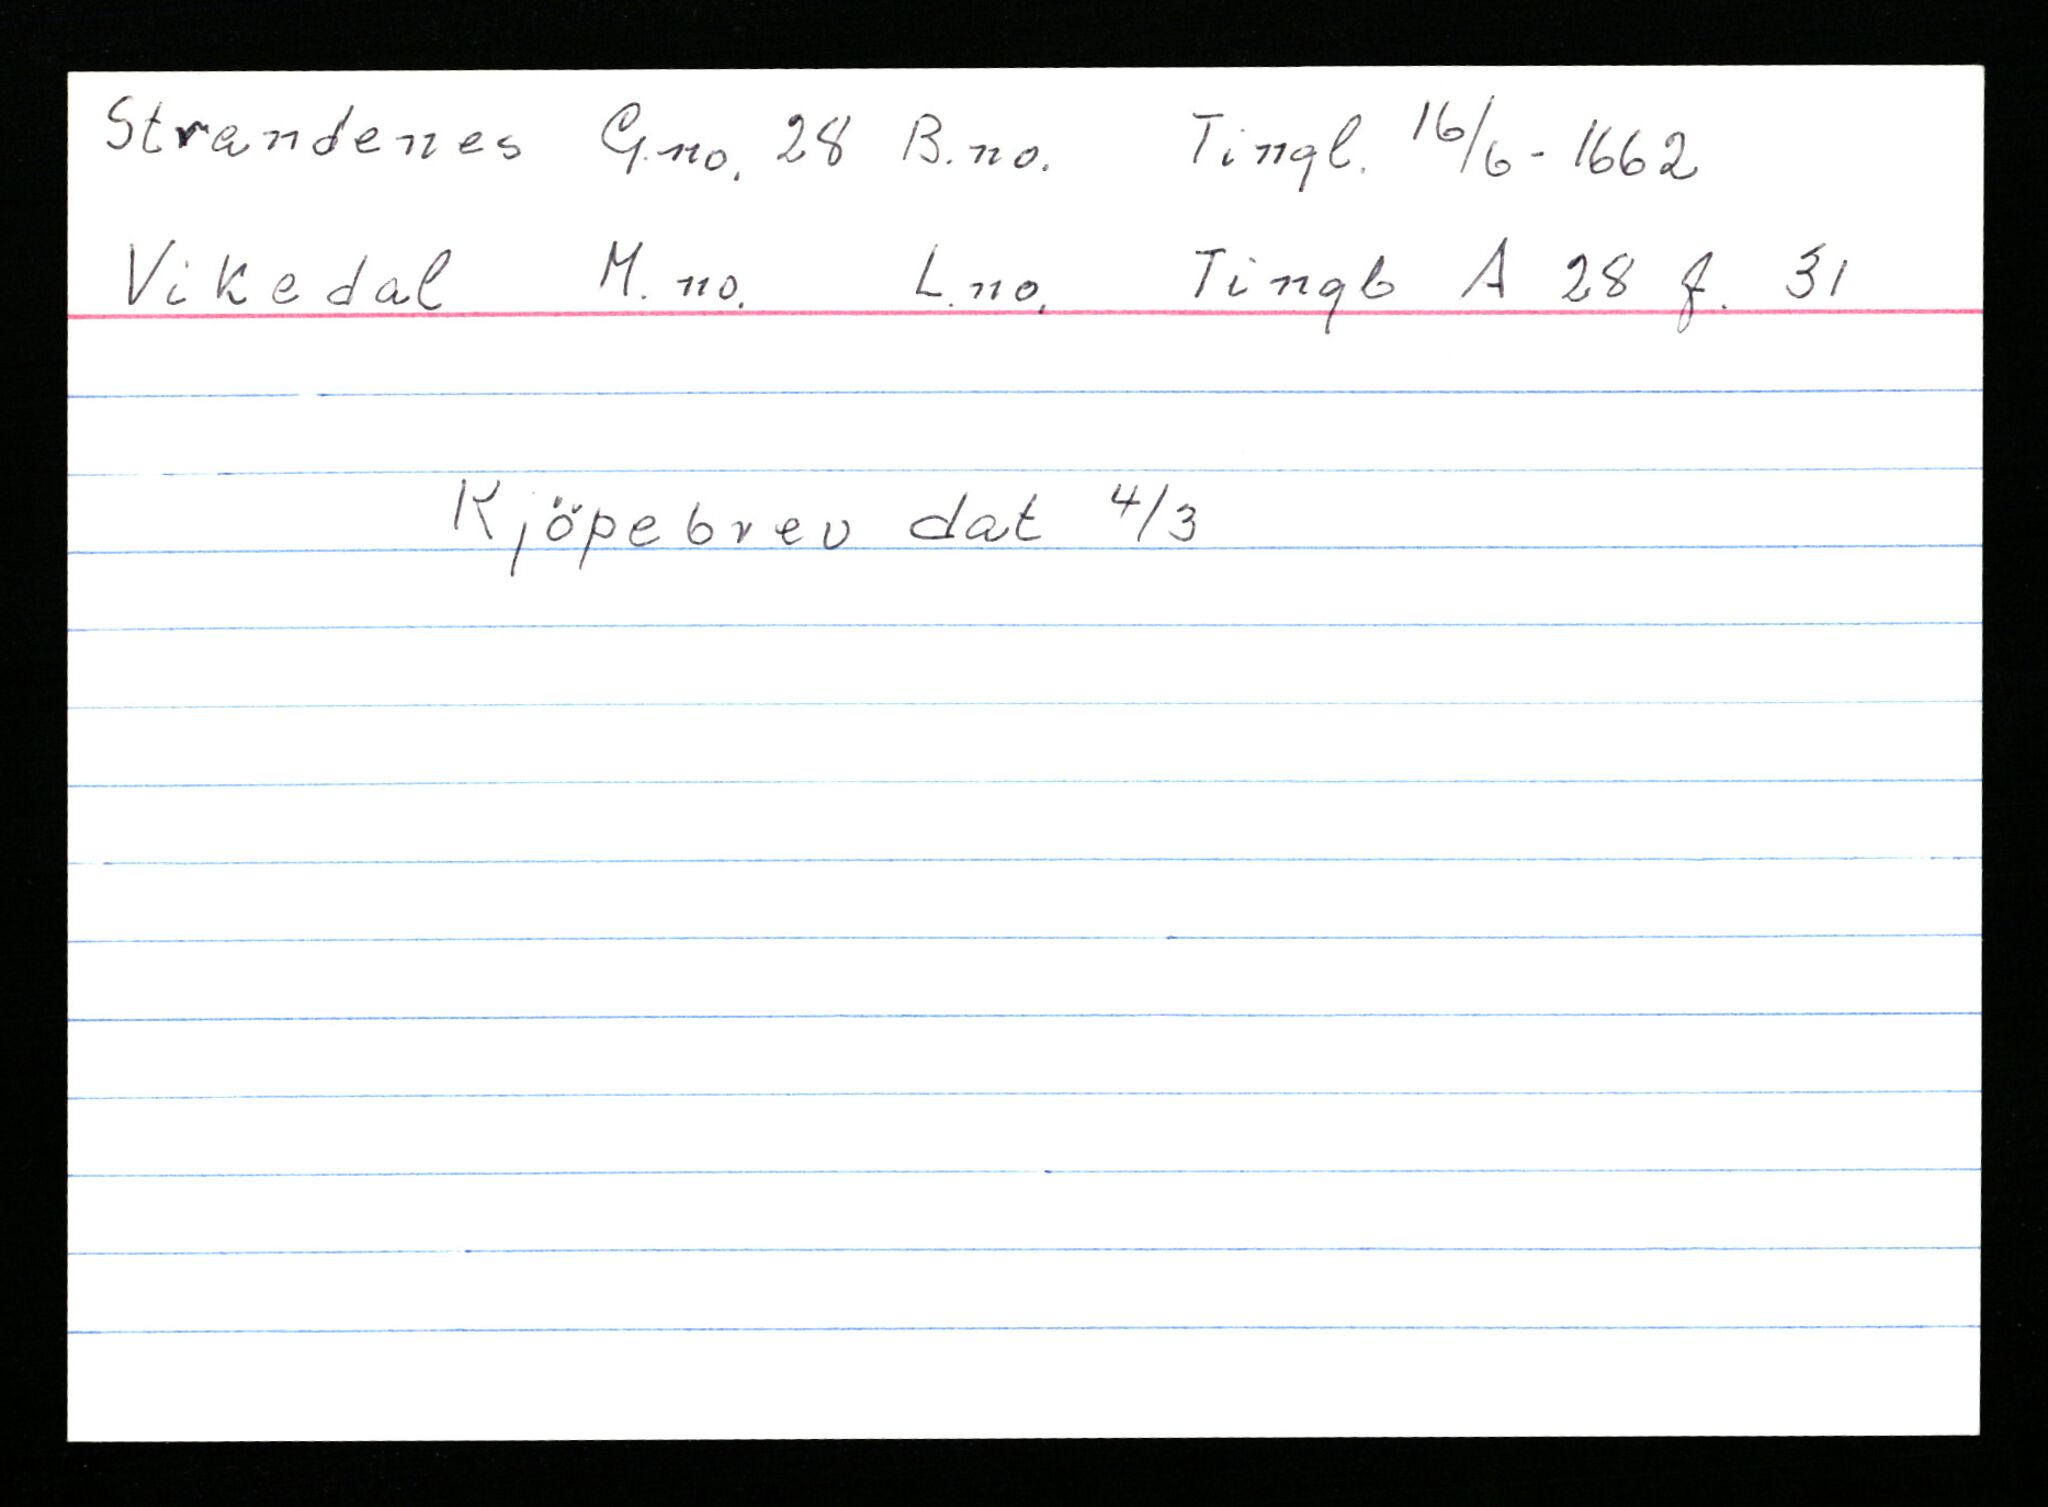 Strandenes G.no. 28 B.no. Tingl. 16/6 - 1662
Vikedal M.no. L.no. Tingb A 28 f. 31
Kjöpebrev dat 4/3